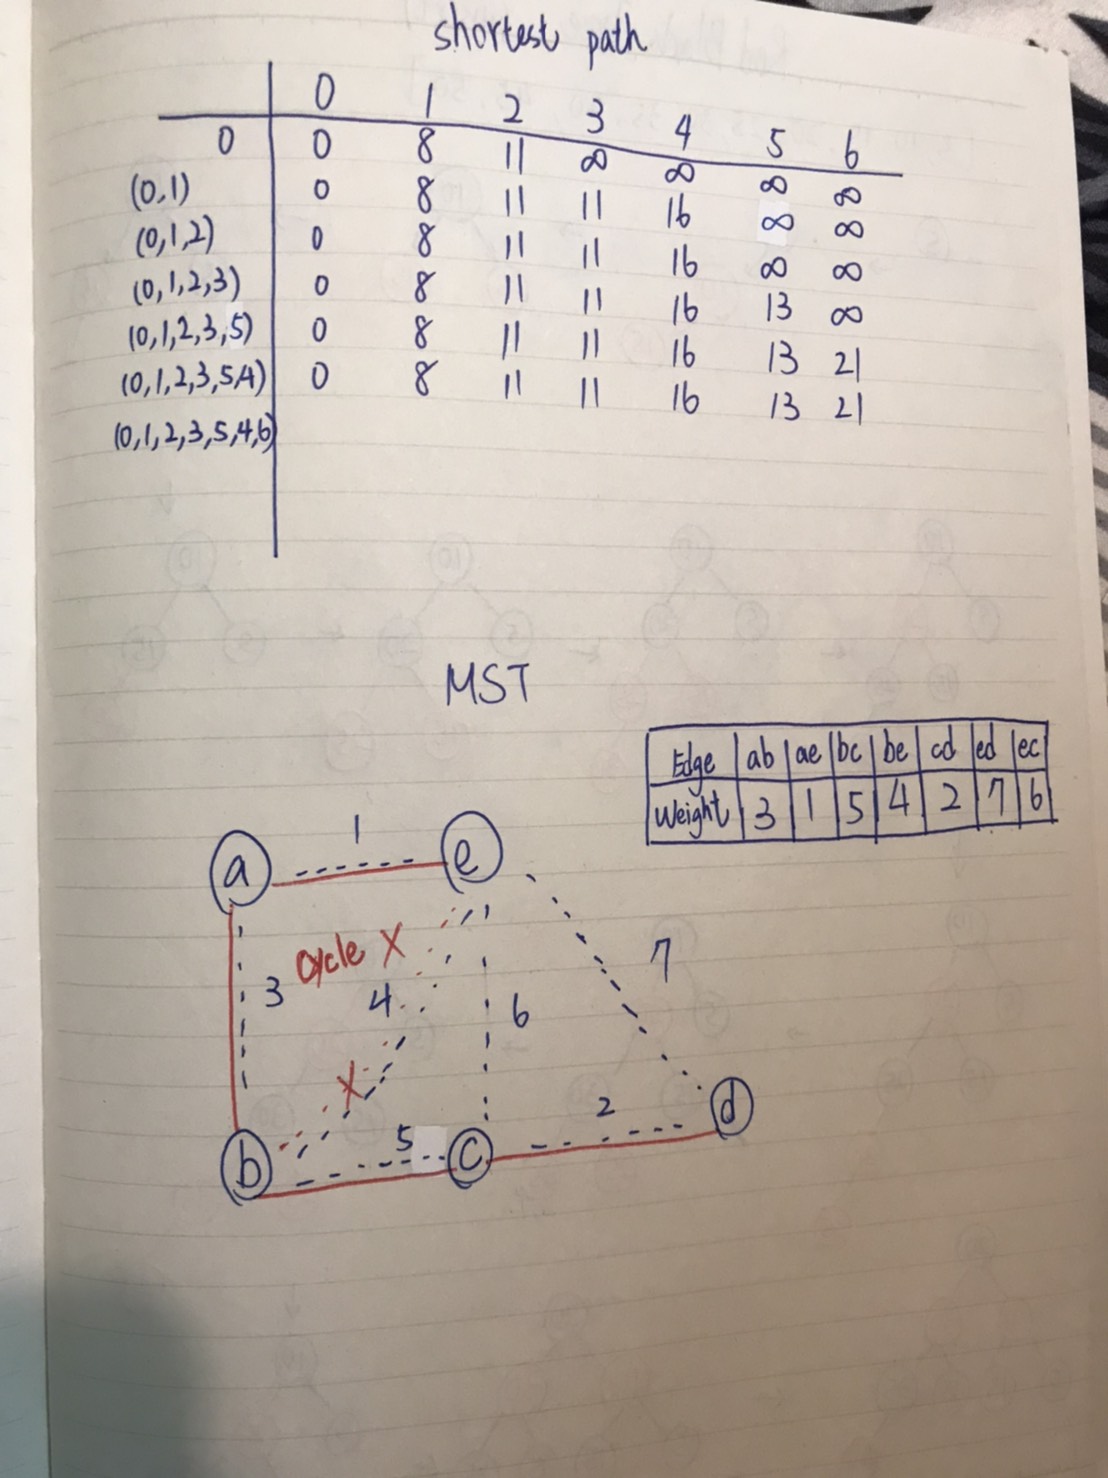 shortest path
0 1 2 3 4 5 6
0 0 8 11 ∞ ∞ ∞ ∞
(0,1) 0 8 11 11 16 ∞ ∞
(0,1,2) 0 8 11 11 16 ∞ ∞
(0,1,2,3) 0 8 11 11 16 13 ∞
(0,1,2,3,5) 0 8 11 11 16 13 21
(0,1,2,3,5,4) 0 8 11 11 16 13 21
(0,1,2,3,5,4,6)
MST
Edge ab ae bc be cd ed ec
Weight 3 1 5 4 2 7 6
1
a e
cycle X
3 4 6 7
X
5 2
b c d